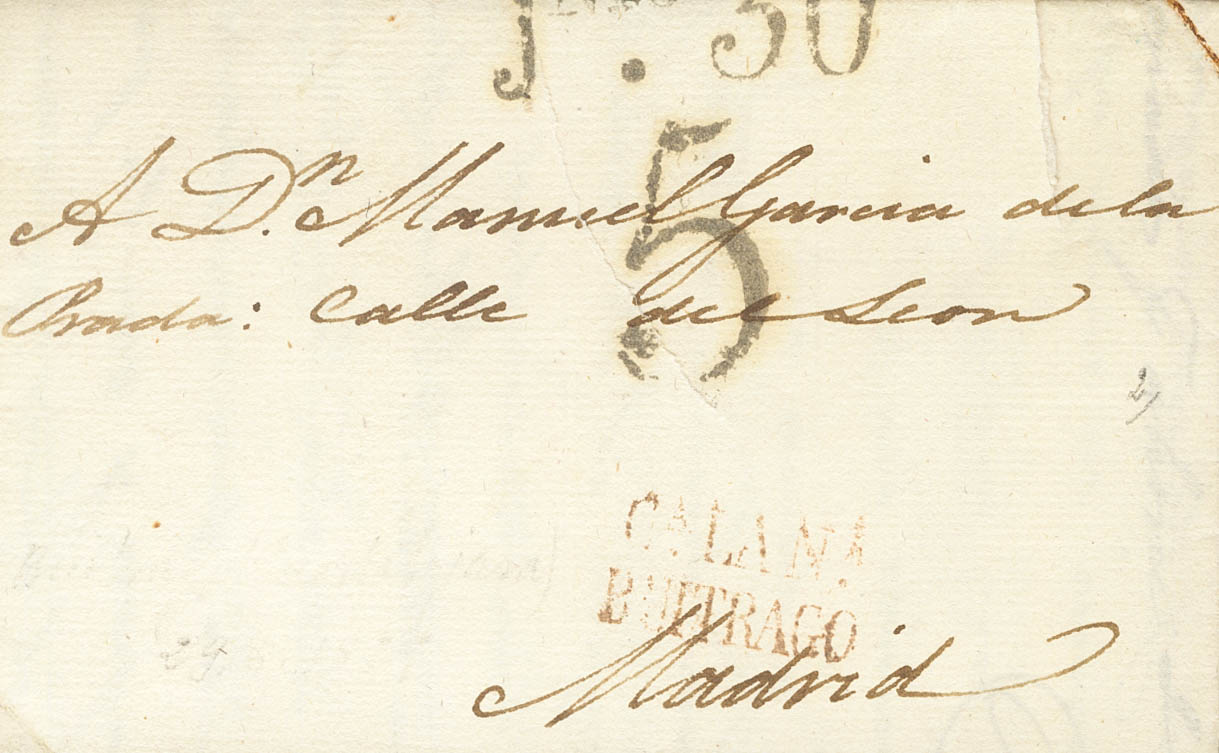 30
5
A Dn. Manuel Garcia de la
Prada: Calle del Leon
2)
CALAN.
BUITRAGO
Madrid